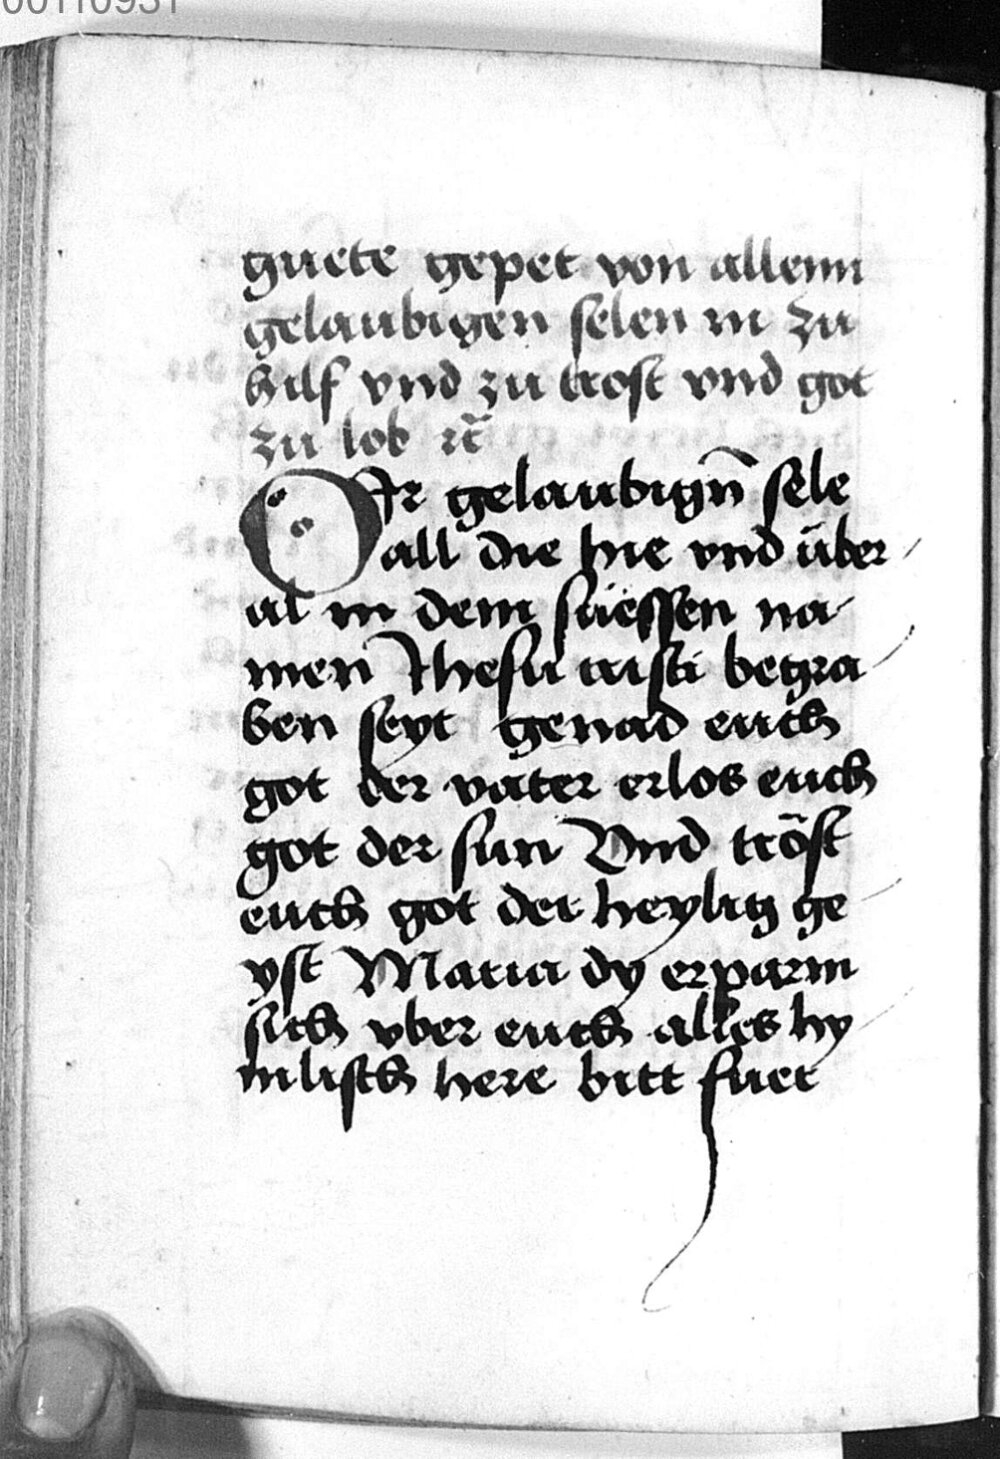 00110931
guete gepet von allenn
gelaubigen selen in zu
hilf vnd zu trost vnd got
zu lob ꝛc̃
O Ir gelaubign̄ sele
all die hie vnd über
al in dem süessen na
men Jhesu cristi begra
ben seyt genad euch
got der vater erlos euch
got der sun Vnd tröst
euch got der heylig ge
yst Maria dy erparm
sich vber euch alles hy
mlisch here bitt fuer